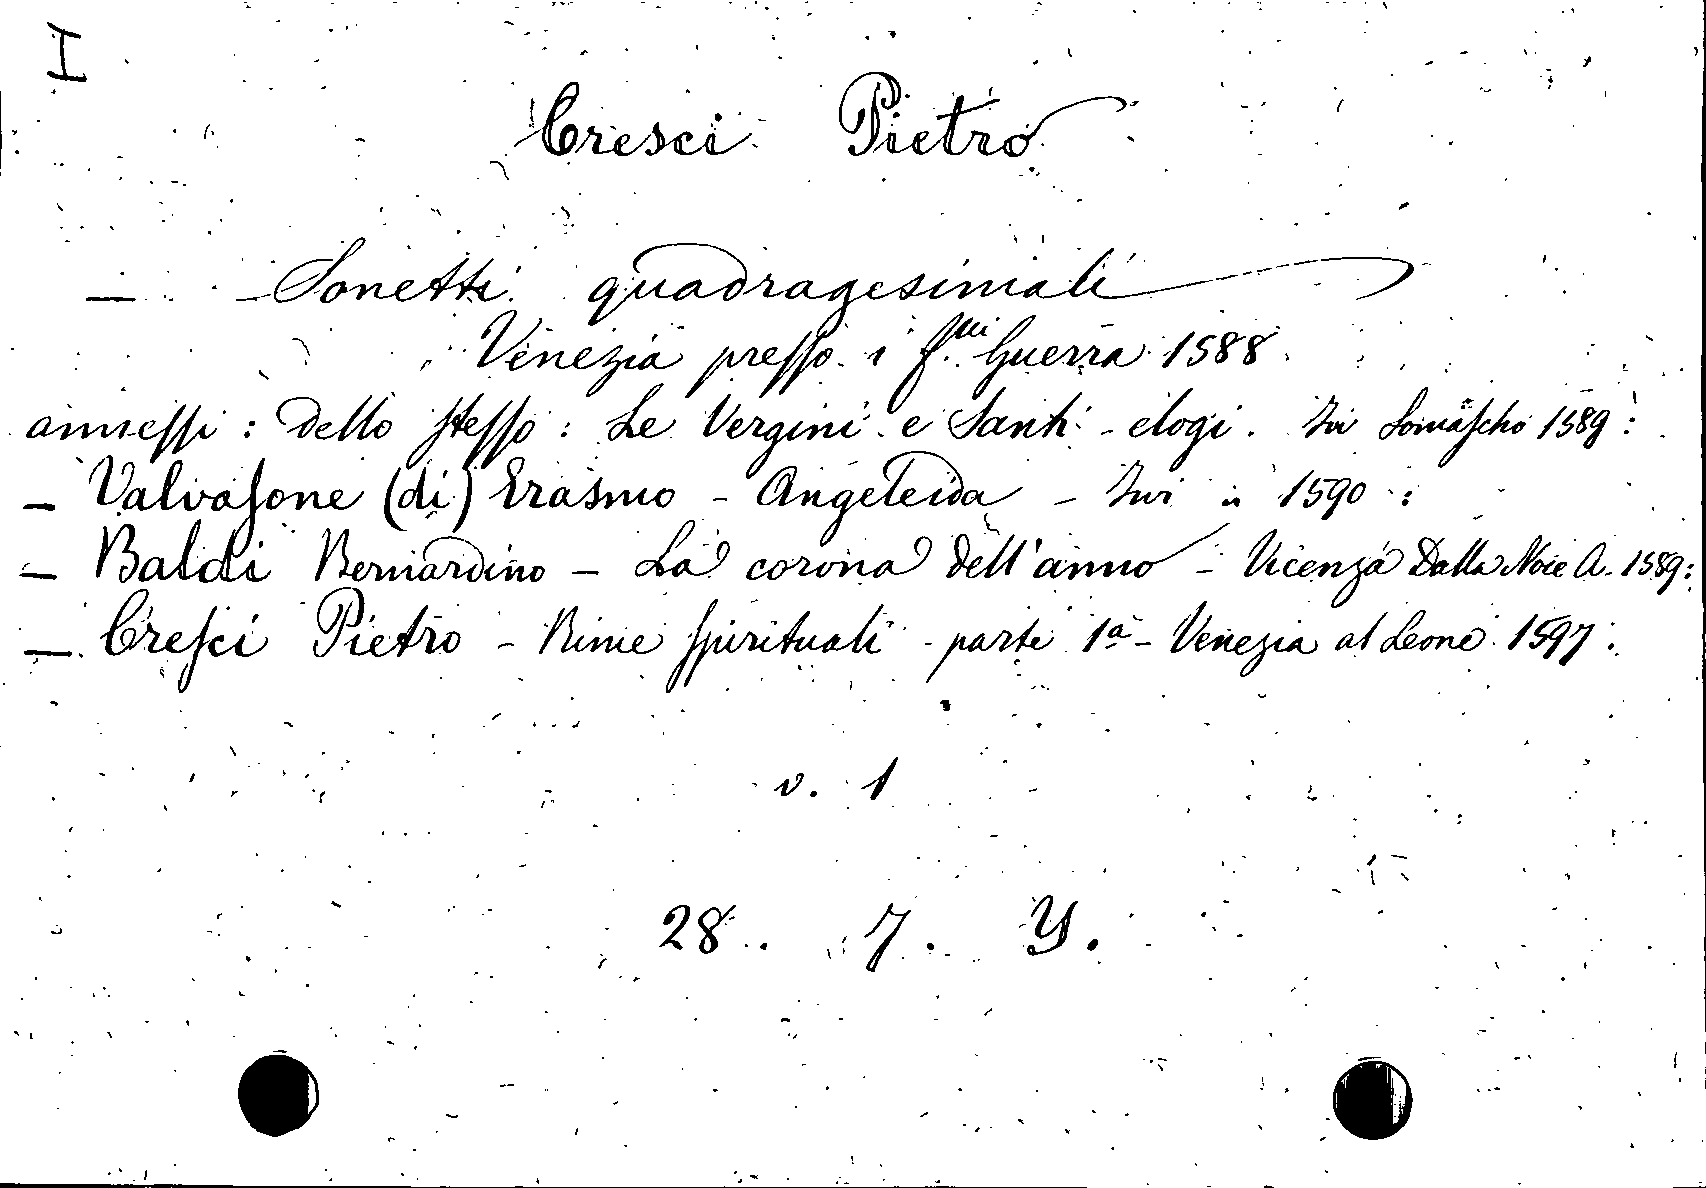 I
Cresci Pietro
— Sonetti quadragesimali
Venezia presso i f.lli Guerra 1588
annessi : dello stesso : Le Vergini e Santi - elogi . Ivi Somascho 1589 :
— Valvasone (di) Erasmo - Angeleida - Ivi " 1590 :
— Baldi Bernardino - La corona dell'anno - Vicenza Dalla Noce A. 1589 :
— Cresci Pietro - Rime spirituali - parte 1a - Venezia al Leone 1597 :
v. 1
28. 7. Y.